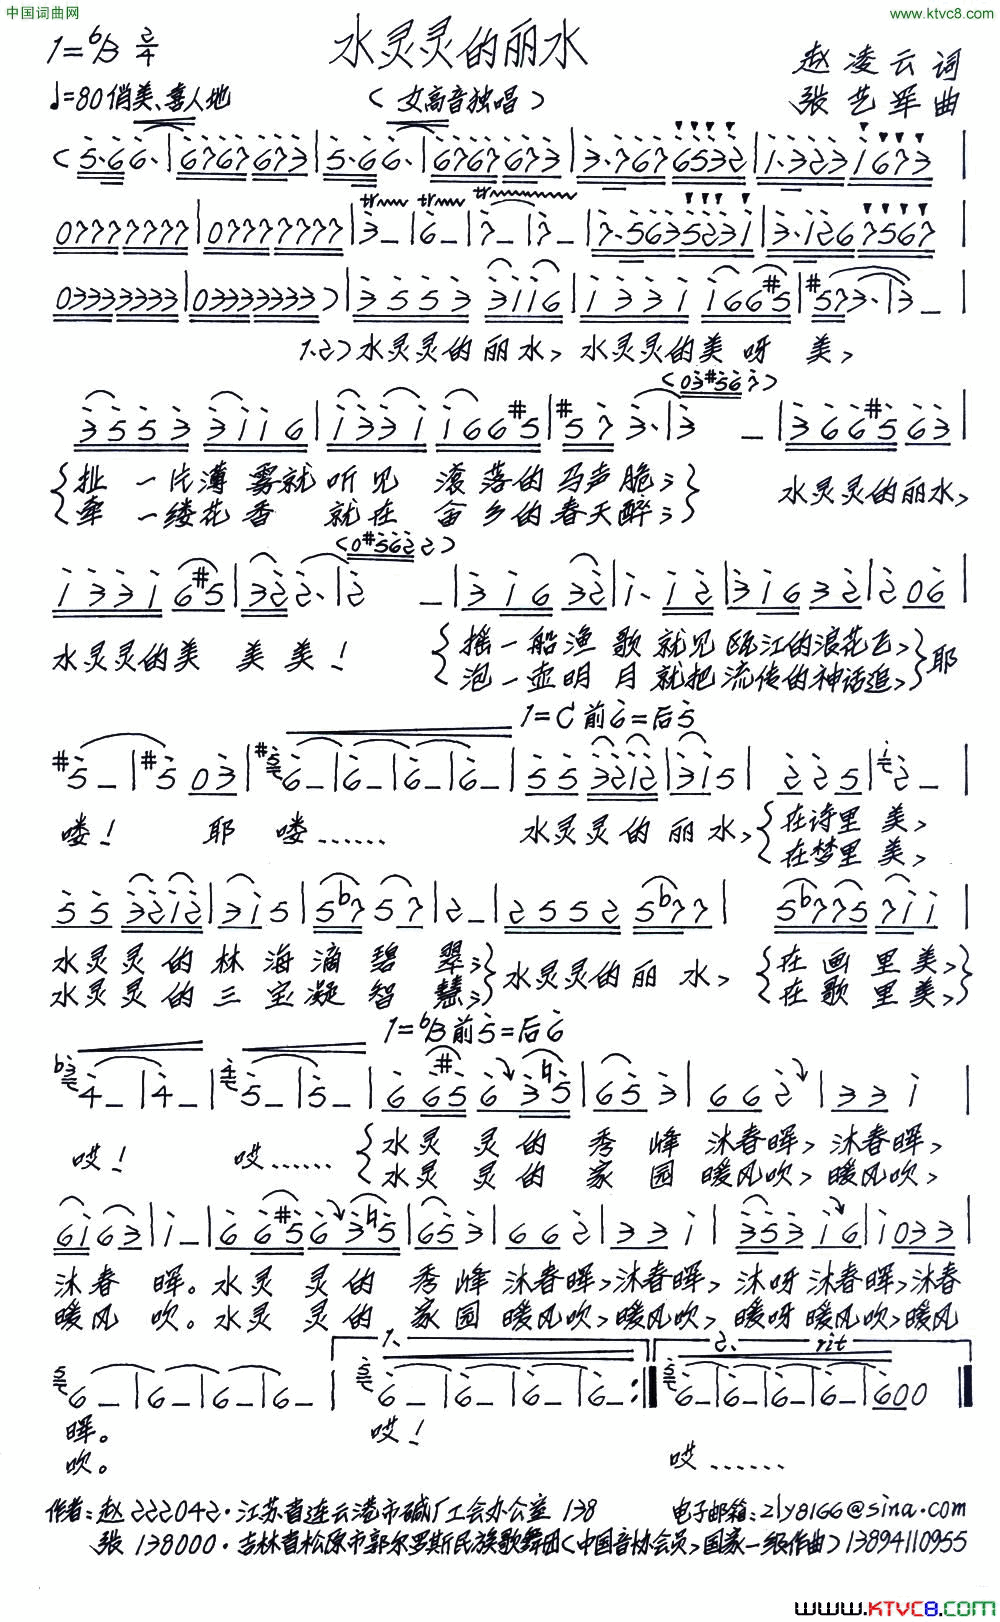 中国词曲网
www.ktvc8.com
1=♭B 2/4
水灵灵的丽水
赵凌云 词
♩=80 俏美、喜人地
(女高音独唱)
张艺军 曲
1.2) 水灵灵的丽水, 水灵灵的美呀 美,
扯 一片薄雾就听见 滚落的鸟声脆;
牵 一缕花香 就在 畲乡的春天醉;
水灵灵的丽水,
水灵灵的美 美美!
摇一船渔歌就见瓯江的浪花飞,
泡一壶明月就把流传的神话追,
耶
1=C 前6=后5
喽! 耶 喽……
水灵灵的丽水,
在诗里 美,
在梦里 美,
水灵灵的林海滴碧翠;
水灵灵的三宝凝智慧;
水灵灵的丽 水,
在画里美,
在歌里美,
1=♭B 前5=后6
哎! 哎……
水灵 灵的 秀峰 沐春晖, 沐春晖,
水灵 灵的 家园 暖风吹, 暖风吹,
沐春 晖。水灵 灵的 秀峰 沐春晖,沐春晖, 沐呀沐春晖,沐春
暖风 吹。水灵 灵的 家园 暖风吹,暖风吹, 暖呀暖风吹,暖风
1.
2.
rit
晖。 哎!
吹。 哎……
作者: 赵 222042·江苏省连云港市碱厂工会办公室 138
电子邮箱: zly8166@sina.com
张 138000·吉林省松原市郭尔罗斯民族歌舞团(中国音协会员,国家一级作曲) 13894110955
www.KTVC8.com